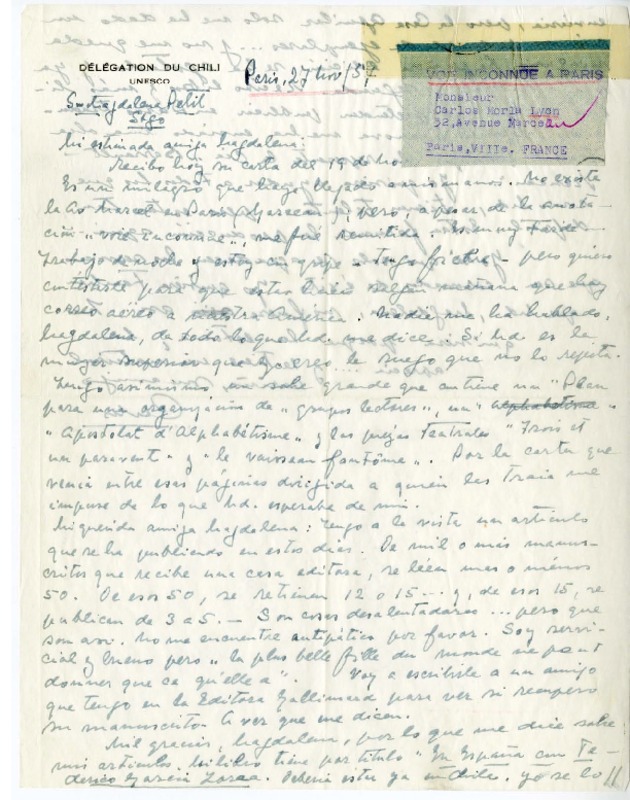 DÉLÉGATION DU CHILI
UNESCO
Paris, 27 Nov/5
VOIE INCONNUE A PARIS
Monsieur
Carlos Morla Lynn
32, Avenue Marceau
Paris, VIIIe. FRANCE
Sra Magdalena Petit
Stgo
Mi estimada amiga Magdalena:
Recibo hoy su carta del 19 de No
Es un milagro que haya llegado a mis manos. No existe
la Marcel en Paris pero, a pesar de la anota-
ción "voie inconnue", me fué remitida. Es muy tarde
trabajo de noche y estoy con gripe - tengo fiebre - pero quiero
contestarle para que estas salgan mañana que hay
correo aéreo a nuestra América. Nadie me ha hablado,
Magdalena, de todo lo que Ud. me dice. Si Ud es la
mujer superior que yo creo le ruego que no lo repita.
Tengo asimismo un sobre grande que contiene un "Plan
para una organización de "grupos lectores", un
"Apostolat d'Alphabétisme" y las piezas teatrales "Trois et
un paravent" y "le vaisseau fantôme". Por la carta que
venía entre esas páginas dirigida a quien las traía me
impuse de lo que Ud. esperaba de mi.
Mi querida amiga Magdalena: tengo a la vista un artículo
que se ha publicado en estos días. De mil o más manus-
critos que recibe una casa editora, se leen mas o menos
50. De esos 50, se retienen 12 o 15... y, de esos 15, se
publican de 3 a 5. - Son cosas desalentadoras ... pero que
son así. No me encuentre antipático por favor. Soy servi-
cial y bueno pero "la plus belle fille du monde ne peut
donner que ce qu'elle a". Voy a escribirle a un amigo
que tengo en la Editora Gallimard para ver si recupero
su manuscrito. A ver que me dicen.
Mil gracias, Magdalena, por lo que me dice sobre
mis artículos. Mi libro tiene por título "En España con Fe-
derico García Lorca. Debería estar ya en Chile. Yo se lo